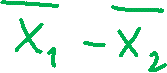 $\overline{X_1} - \overline{X_2}$